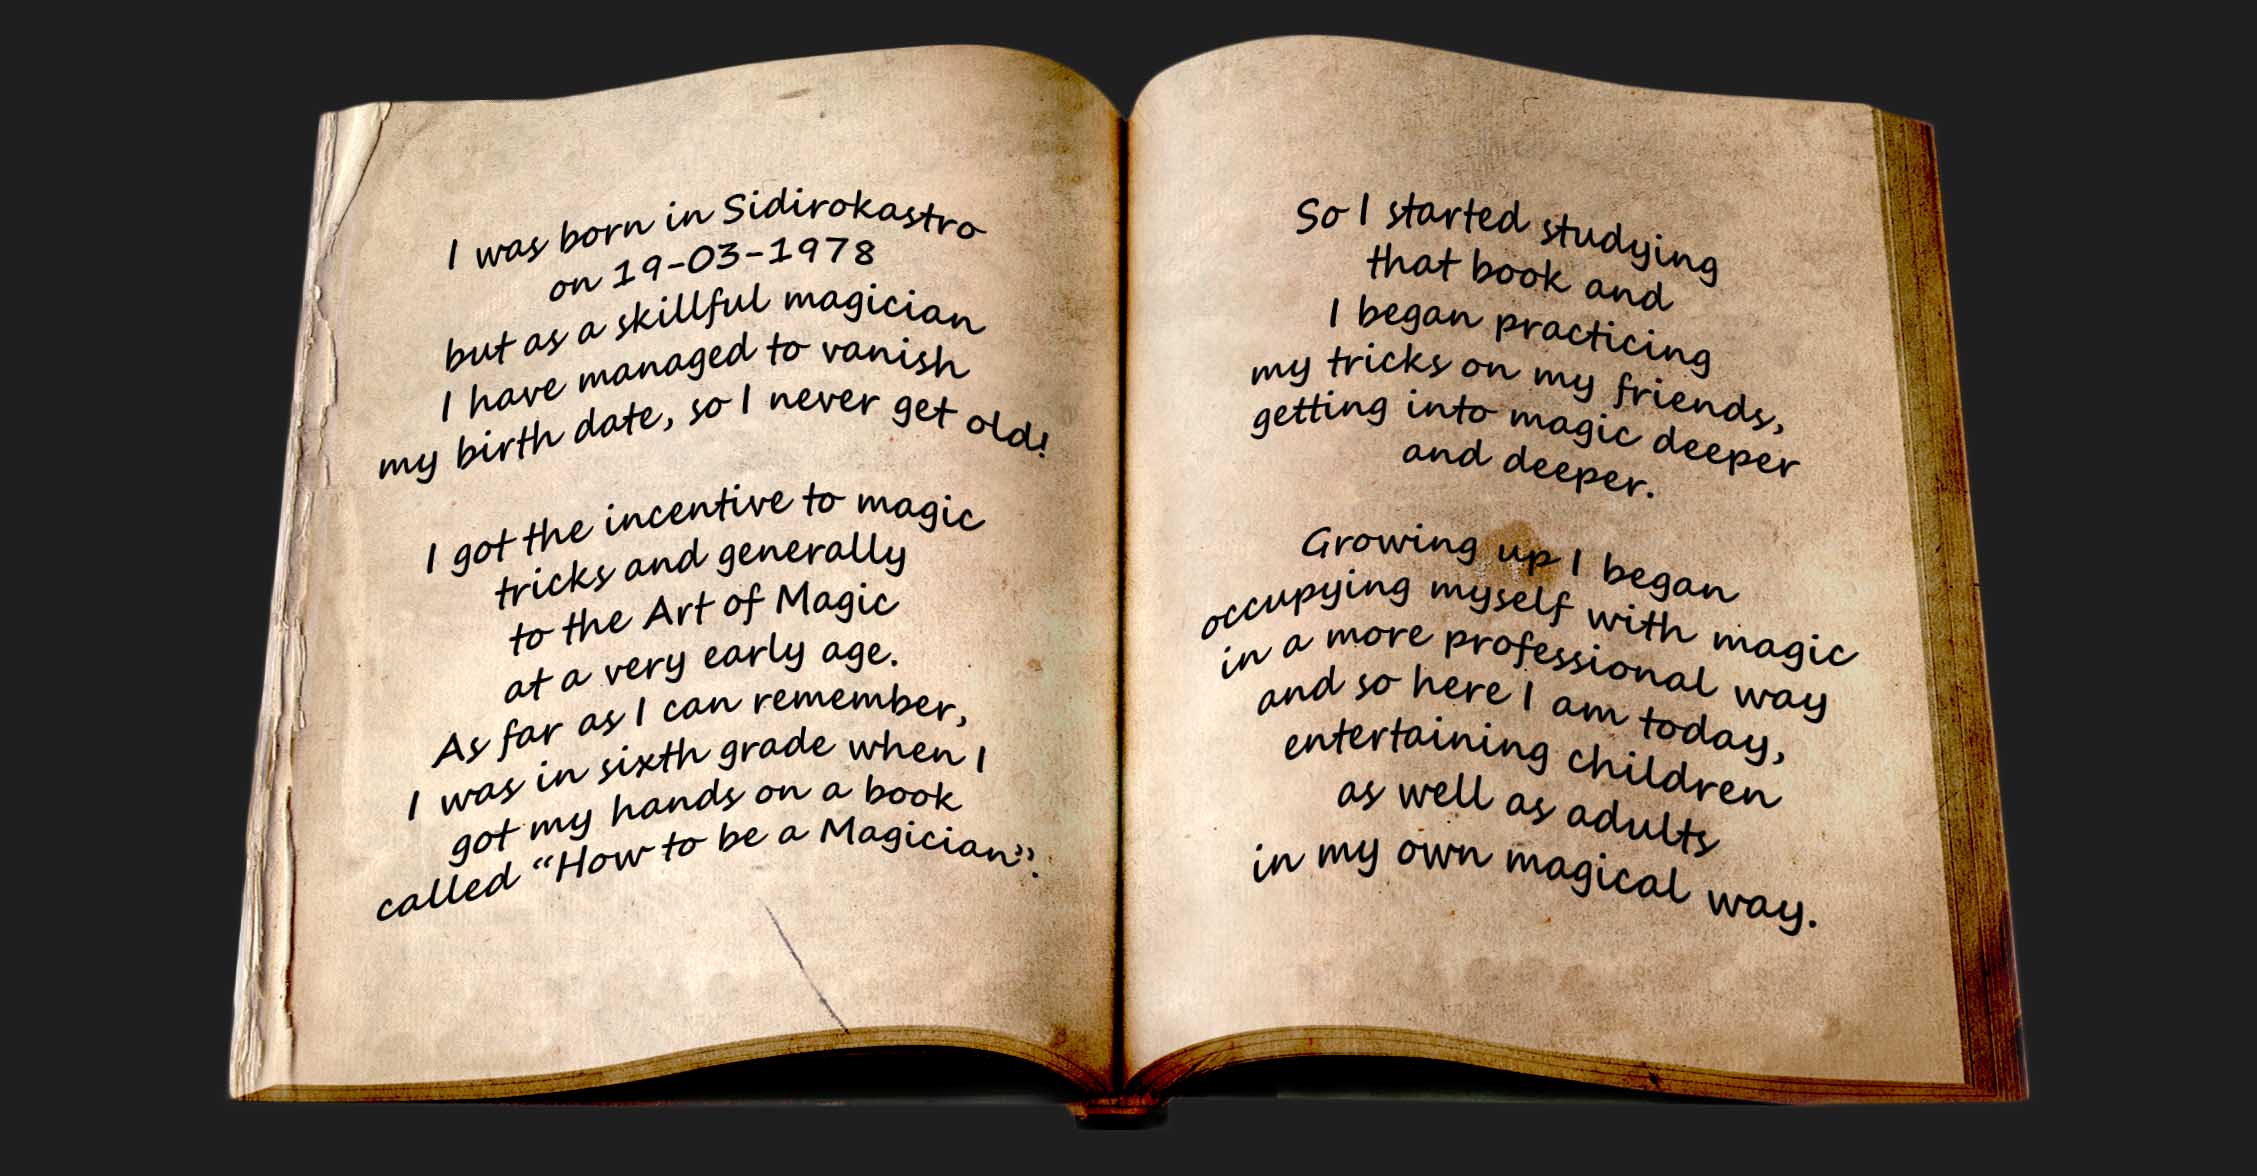 I was born in Sidirokastro
on 19-03-1978
but as a skillful magician
I have managed to vanish
my birth date, so I never get old!
I got the incentive to magic
tricks and generally
to the Art of Magic
at a very early age.
As far as I can remember,
I was in sixth grade when I
got my hands on a book
called “How to be a Magician”.
So I started studying
that book and
I began practicing
my tricks on my friends,
getting into magic deeper
and deeper.
Growing up I began
occupying myself with magic
in a more professional way
and so here I am today,
entertaining children
as well as adults
in my own magical way.